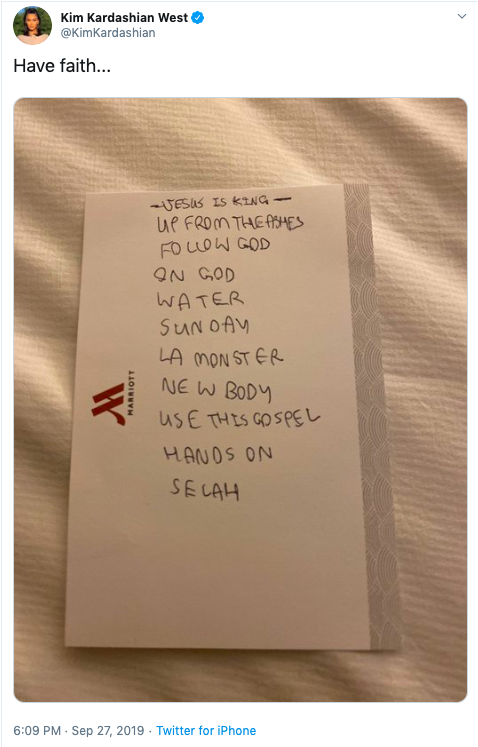 Kim Kardashian West
@KimKardashian
Have faith...
-JESUS IS KING-
UP FROM THE ASHES
FOLLOW GOD
ON GOD
WATER
SUNDAY
LA MONSTER
NEW BODY
USE THIS GOSPEL
HANDS ON
SELAH
MARRIOTT
6:09 PM · Sep 27, 2019 · Twitter for iPhone